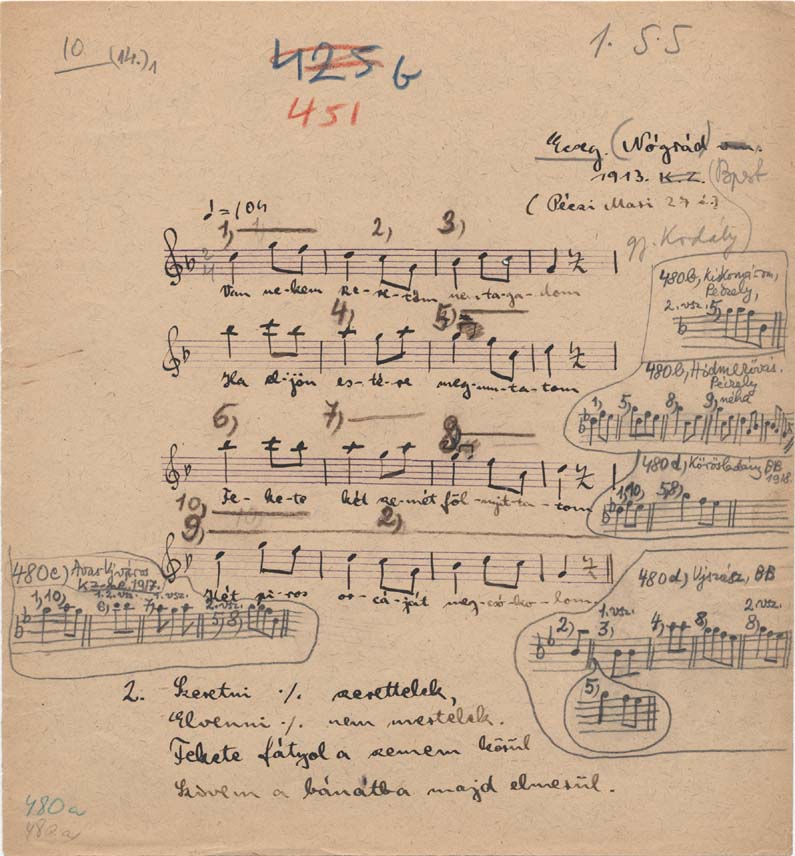 10 (14.)1
1. 5. 5
425 b
451
Eceg. (Nógrád
1913. K. Z. (Bpest
(Péczi Mari 27 é.)
gy. Kodály)
♩=104
1) 2) 3)
Van ne-kem sze-re-tőm nem ta-ga-dom
480b, Kiskomárom,
Péczely,
2. vsz. 5)
4) 5)
Ha el-jön es-té-re meg-mu-ta-tom
480b, Hódmezővás.
Péczely
1) 5) 8) 9) néha
6) 7) 8)
Fe-ke-te két sze-mét föl-nyit-ta-tom
480d) Körösladány BB
1918.
1,10) 5,8)
10)
9) 2)
Két pi-ros or-cá-ját meg-csó-ko-lom
480c)
K.Z. 1917.
1,10) 1.2. vsz. 6) 7) 1. vsz. 2. vsz. 5) 8)
480d) Ujszász, BB
2) 1. vsz. 3) 4) 8) 2. vsz. 8)
5)
2. Szeretni ·/. szerettelek,
Elvenni ·/. nem mertelek.
Fekete fátyol a szemem körül
Szivem a bánátba majd elmerül.
480a
482a